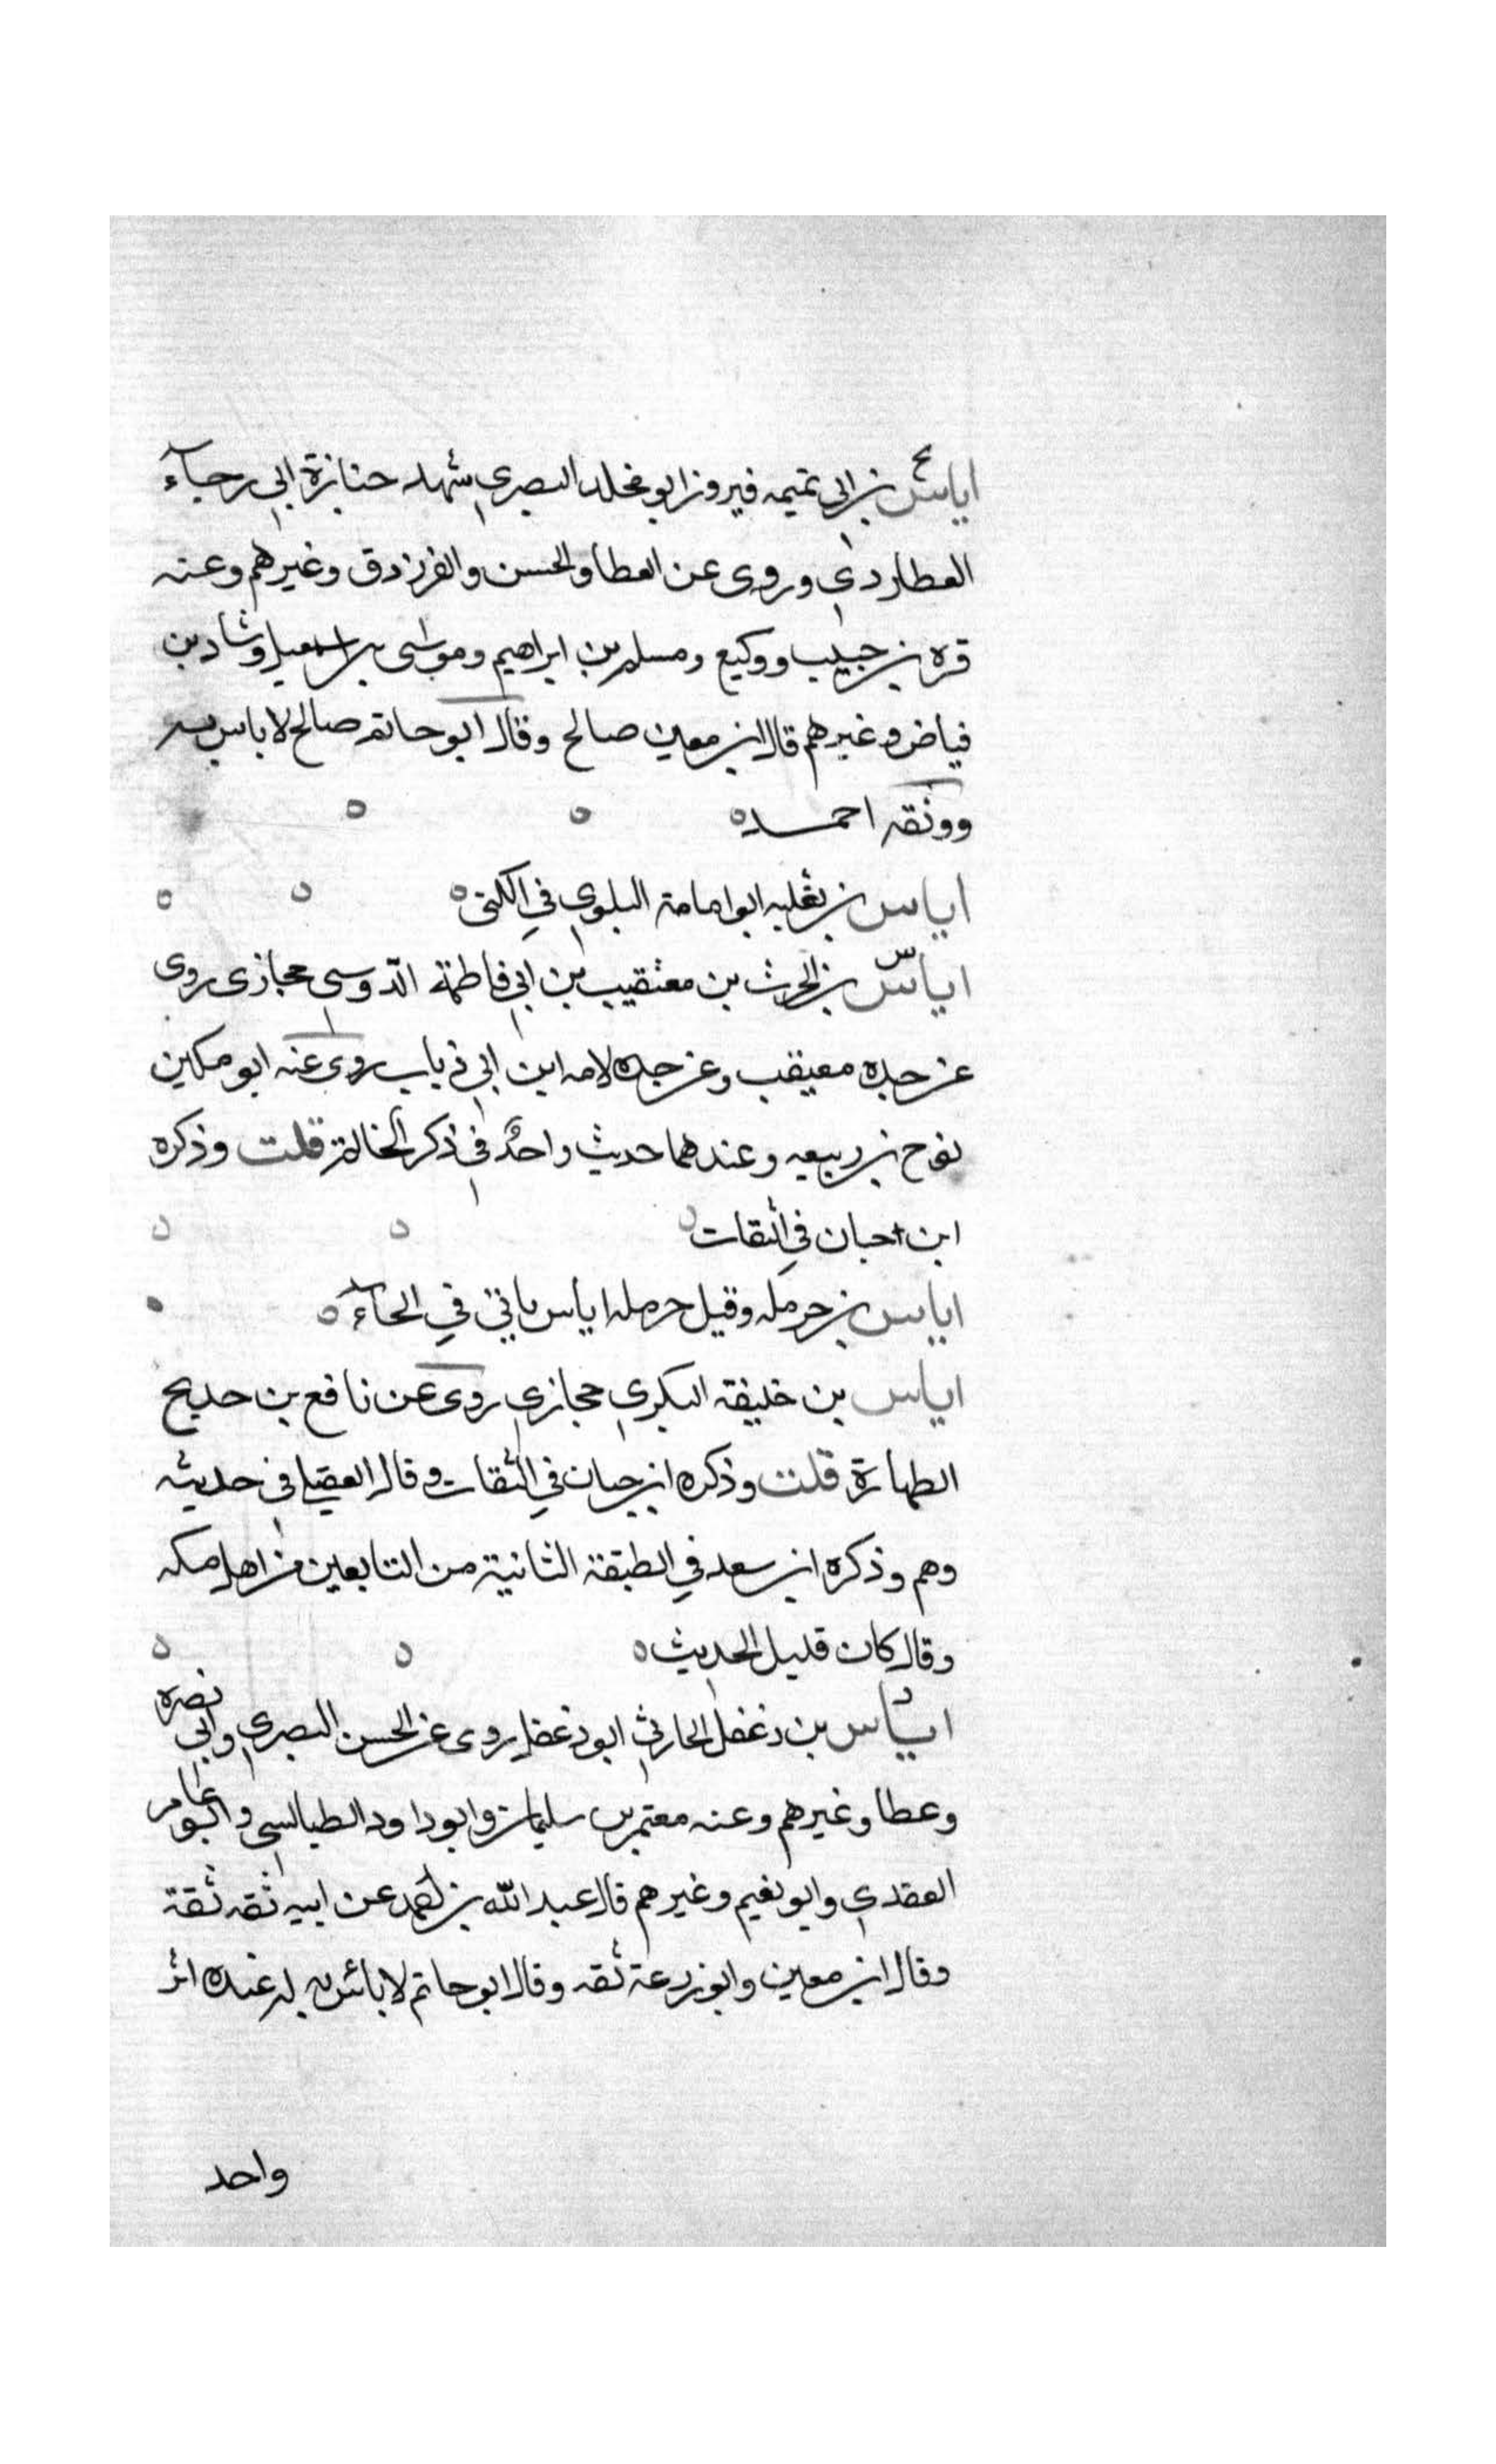 اياس بن ابى تميمه فيروز ابو مخلد البصري شهد جنازة ابي رجآء
العطاردي وروى عن العطا والحسن والفرزدق وغيرهم وعنه
قره بن حبيب ووكيع ومسلم بن ابراهيم وموسى بن اسمعيل وشاد بن
فياض وغيرهم قال ابن معين صالح وقال ابو حاتم صالح لا باس به
ووثقه احمد
اياس بن ثعلبه ابو امامة البلوي في الكنى
اياس بن الحرث بن معيقيب بن ابي فاطمة الدوسي حجازى روى
عن جده معيقب وعن جده لامه ابن ابي ذياب روى عنه ابو مكين
نوح بن ربيعه وعندهما حديث واحد في ذكر الخالة قلت وذكره
ابن حبان في الثقات
اياس بن حرمله وقيل حرمله اياس ياتى في الحآء
اياس بن خليفة البكري حجازي روى عن نافع بن خديج
الطهارة قلت وذكره ابن حبان في الثقات وقال العقيلي في حديثه
وهم وذكره ابن سعد في الطبقة الثانية من التابعين من اهل مكه
وقال كان قليل الحديث
اياس بن دغفل الحارثي ابو دغفل روى عن الحسن البصري وابي نصره
وعطا وغيرهم وعنه معتمر بن سليمان وابو داود الطيالسي وابو عامر
العقدي وابو نعيم وغيرهم قال عبد الله بن احمد عن ابيه ثقه ثقة
وقال ابن معين وابو زرعة ثقه وقال ابو حاتم لا باس به له عنده اثر
واحد